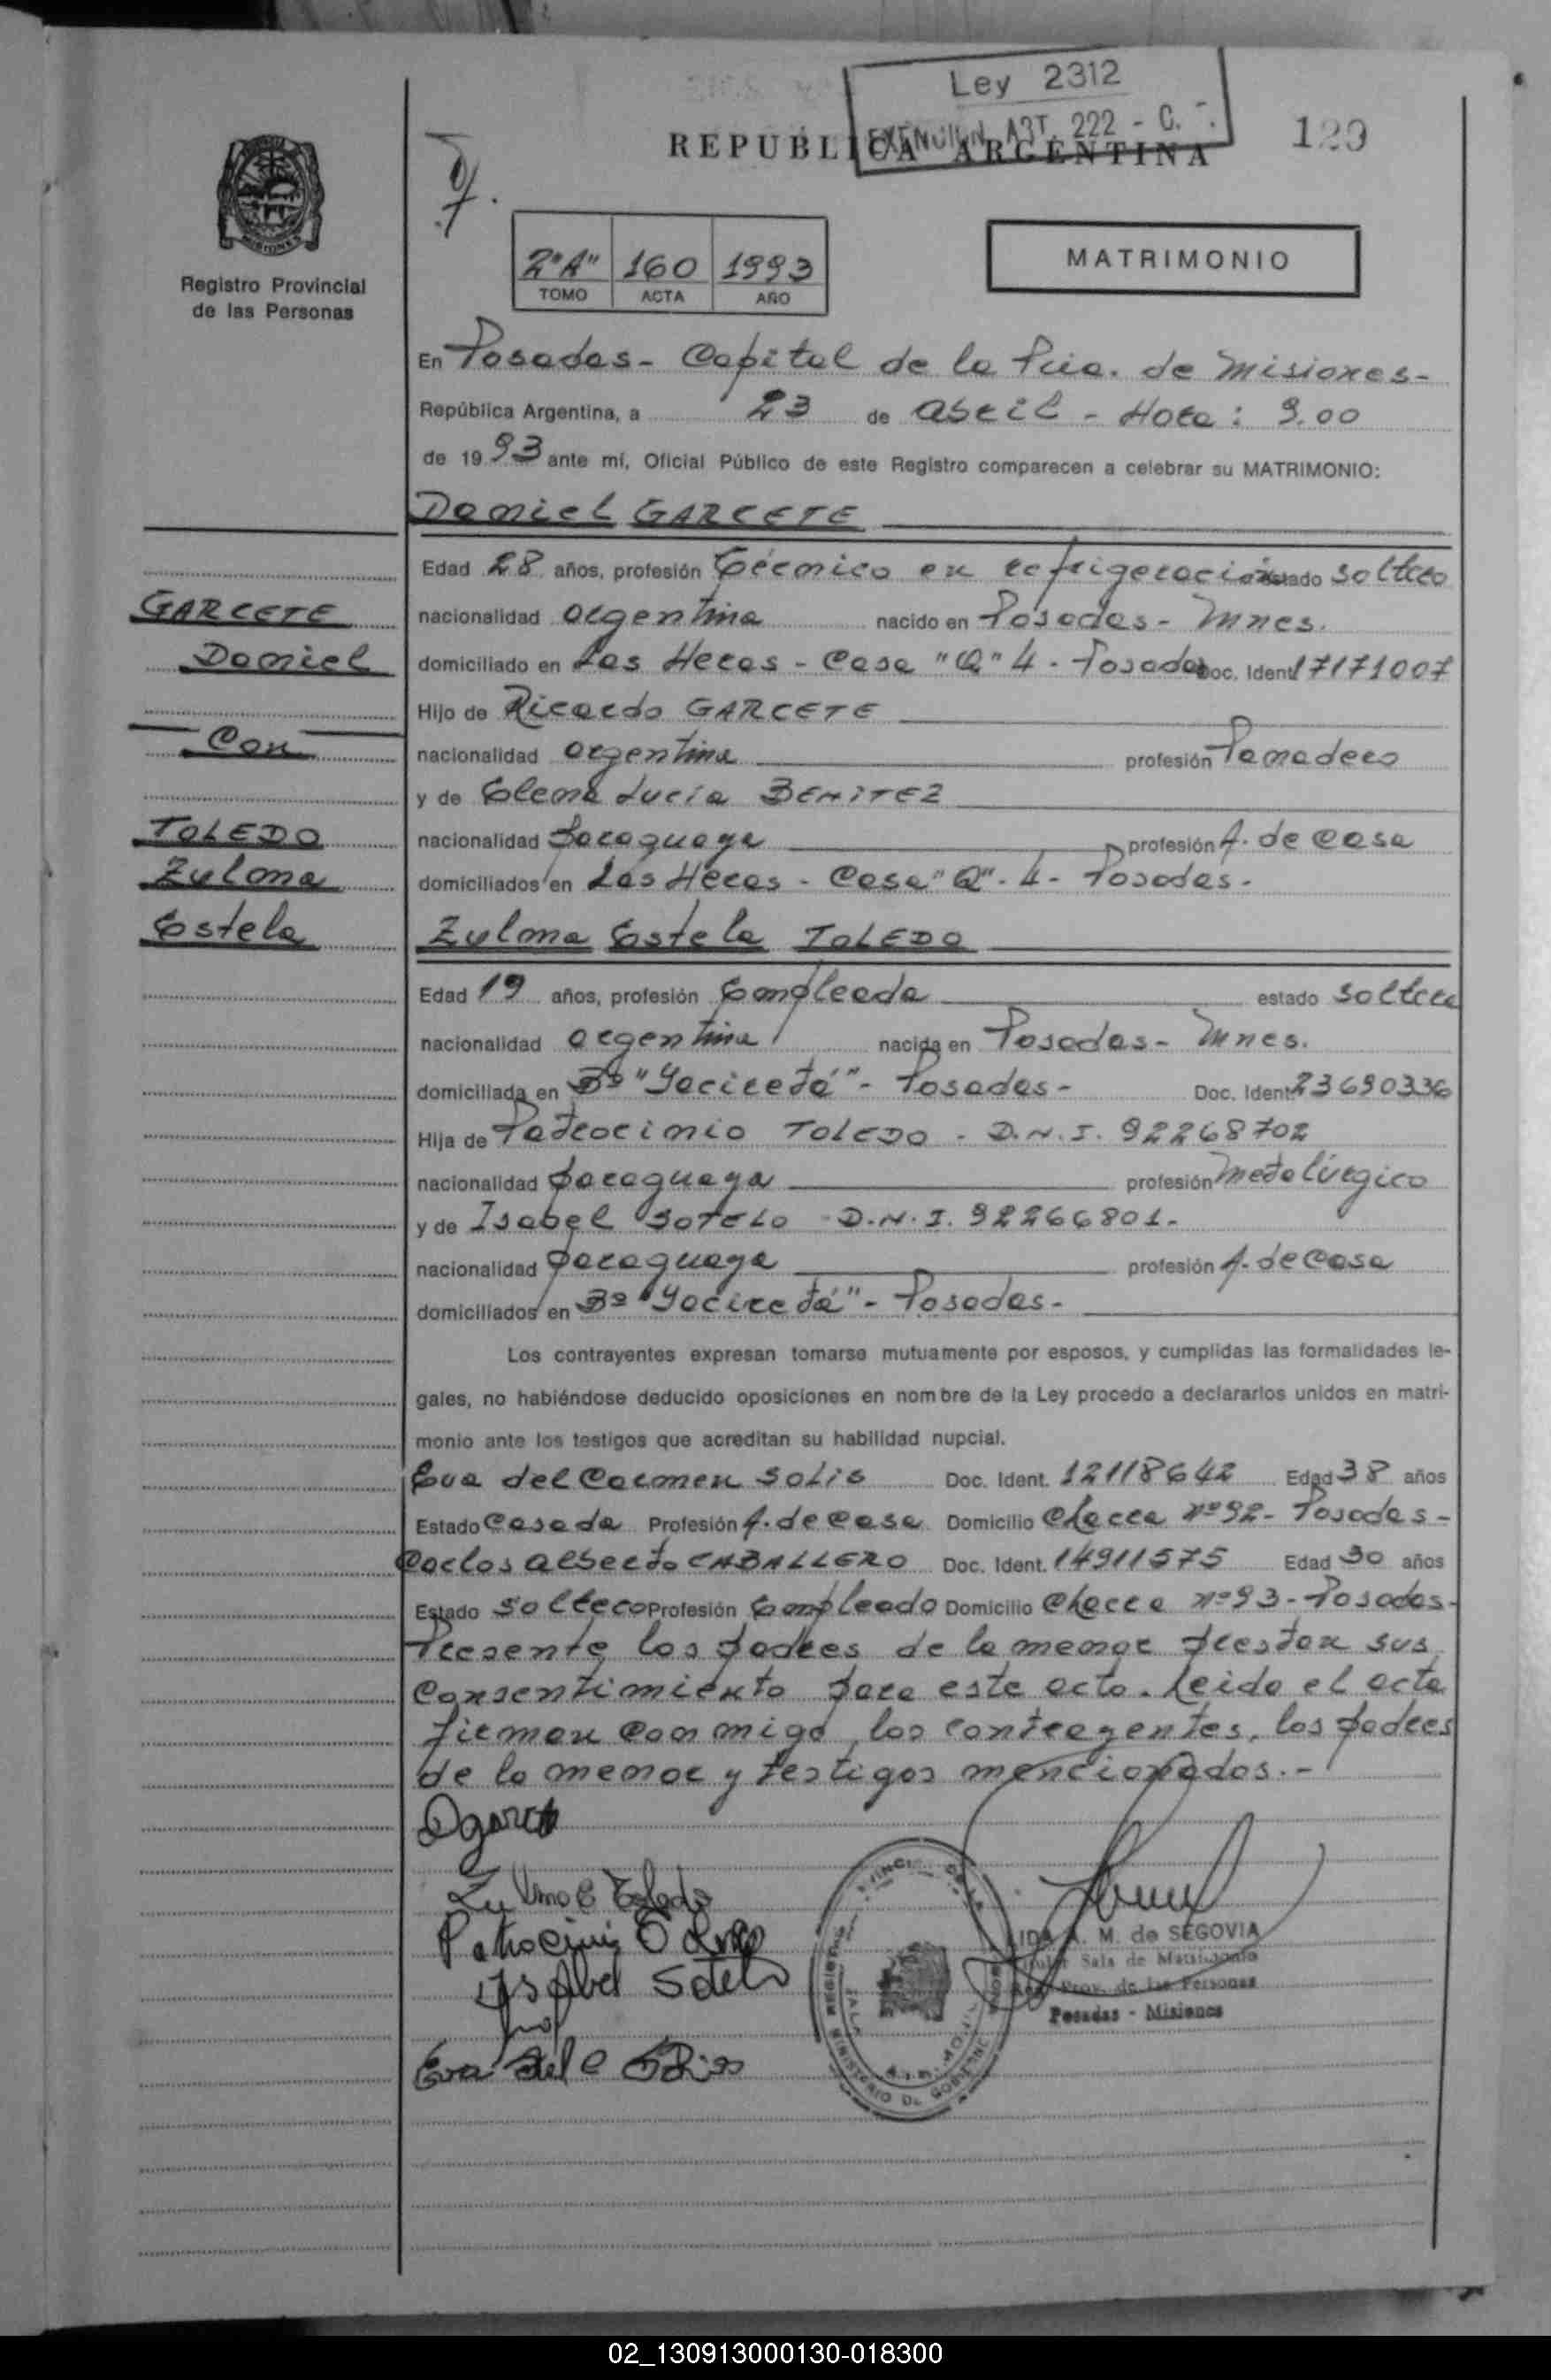 Ley 2312
EXENCION ART. 222 - C.
REPUBLICA ARGENTINA
129
MISIONES
Registro Provincial
de las Personas
2º"A" 160 1993
TOMO ACTA AÑO
MATRIMONIO
En Posadas - Capital de la Pcia. de Misiones -
República Argentina, a 23 de abril - Hora: 9.00
de 1993 ante mí, Oficial Público de este Registro comparecen a celebrar su MATRIMONIO:
Daniel GARCETE
Edad 28 años, profesión Técnico en refrigeración estado soltero
nacionalidad argentina nacido en Posadas - Mnes.
domiciliado en Las Heras - Casa "Q" 4 - Posadas Doc. Ident. 17171007
Hijo de Ricardo GARCETE
nacionalidad argentina profesión Panadero
y de Elena Lucía BENITEZ
nacionalidad paraguaya profesión A. de casa
domiciliados en Las Heras - Casa "Q" - 4 - Posadas -
GARCETE
Daniel
Con
TOLEDO
Zulma
Estela
Zulma Estela TOLEDO
Edad 19 años, profesión Empleada estado soltera
nacionalidad argentina nacida en Posadas - Mnes.
domiciliada en Bº "Yaciretá" - Posadas - Doc. Ident. 23690336
Hija de Patrocinio TOLEDO - D.N.I. 92268702
nacionalidad paraguaya profesión Metalúrgico
y de Isabel SOTELO - D.N.I. 92266801 -
nacionalidad paraguaya profesión A. de Casa
domiciliados en Bº "Yaciretá" - Posadas -
Los contrayentes expresan tomarse mutuamente por esposos, y cumplidas las formalidades le-
gales, no habiéndose deducido oposiciones en nombre de la Ley procedo a declararlos unidos en matri-
monio ante los testigos que acreditan su habilidad nupcial.
Eva del Carmen SOLIS Doc. Ident. 12118642 Edad 38 años
Estado Casada Profesión A. de casa Domicilio Chacra nº 92 - Posadas -
Carlos Alberto CABALLERO Doc. Ident. 14911575 Edad 30 años
Estado Soltero Profesión Empleado Domicilio Chacra nº 93 - Posadas -
Presente los padres de la menor prestan sus
consentimiento para este acto. Leida el acta
firman conmigo los contrayentes, los padres
de la menor y testigos mencionados. -
Zulma E Toledo
Isabel Sotelo
Eva del C Solis
M. de SEGOVIA
Sala de Matrimonio
Prov. de las Personas
Posadas - Misiones
MINISTERIO DE GOBIERNO
02_130913000130-018300